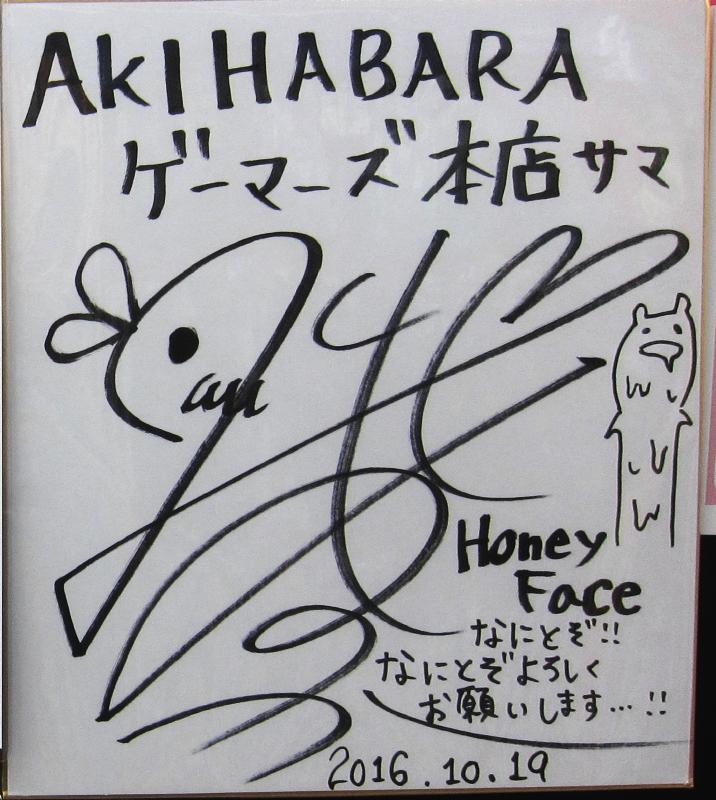 AKIHABARA
ゲーマーズ本店サマ
Honey
Face
なにとぞ!!
なにとぞよろしく
お願いします…!!
2016.10.19